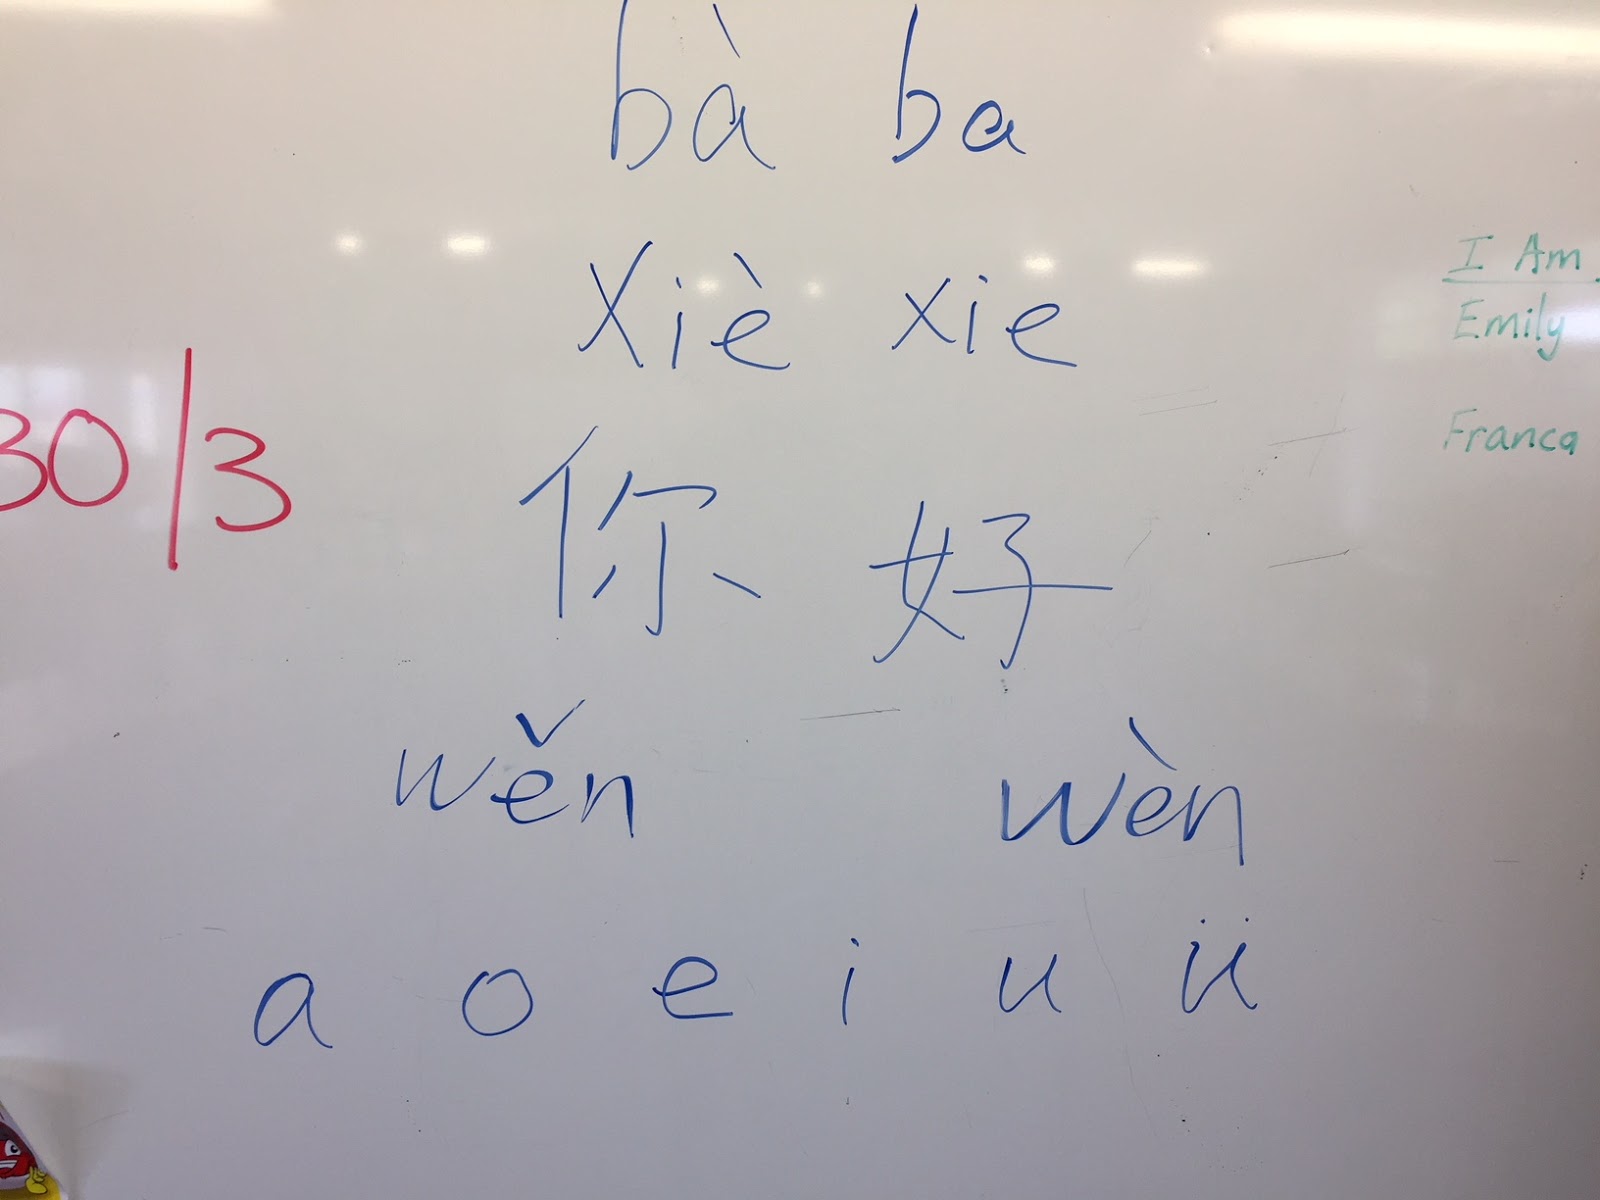 bà ba
Xiè xie
你 好
wěn wèn
a o e i u ü
30/3
I Am
Emily
Franca